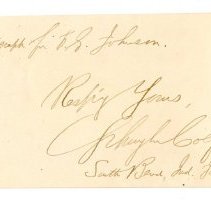 for T. E. Johnson.
Resp'y Yours,
Schuyler Colf
South Bend, Ind.